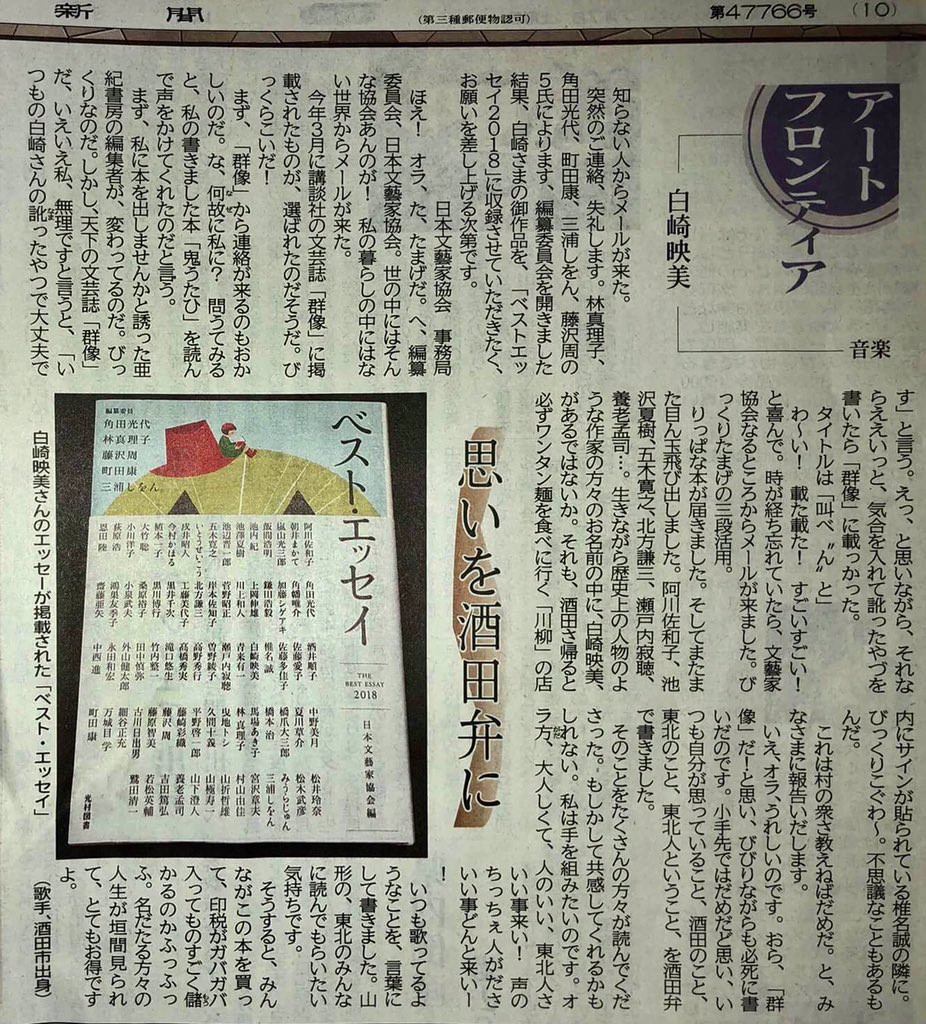 新聞
(第三種郵便物認可)
第47766号
(10)
アート
フロンティア
白崎映美
音楽
知らない人からメールが来た。
突然のご連絡、失礼します。林真理子、
角田光代、町田康、三浦しをん、藤沢周の
5氏によります、編纂委員会を開きました
結果、白崎さまの御作品を、「ベストエッ
セイ2018」に収録させていただきたく、
お願いを差し上げる次第です。
日本文藝家協会 事務局
ほえ! オラ、た、たまげだ。へ、編纂
委員会、日本文藝家協会。世の中にはそん
な協会あんのが! 私の暮らしの中にはな
い世界からメールが来た。
今年3月に講談社の文芸誌「群像」に掲
載されたものが、選ばれたのだそうだ。び
っくらこいだ!
まず、「群像」から連絡が来るのもおか
しいのだ。な、何故に私に? 問うてみる
と、私の書きました本「鬼うたひ」を読ん
で声をかけてくれたのだと言う。
まず、私に本を出しませんかと誘った亜
紀書房の編集者が、変わってるのだ。びっ
くりなのだ。しかし、天下の文芸誌「群像」
だ、いえいえ私、無理ですと言うと、「い
つもの白崎さんの訛ったやつで大丈夫で
す」と言う。えっ、と思いながら、それな
らええいっと、気合を入れて訛ったやづを
書いたら「群像」に載っかった。
タイトルは「叫べ〝ん〟と」
わ〜い! 載た載た! すごいすごい!
と喜んで。時が経ち忘れていたら、文藝家
協会なるところからメールが来ました。び
っくりたまげの三段活用。
りっぱな本が届きました。そしてまたま
た目ん玉飛び出しました。阿川佐和子、池
沢夏樹、五木寛之、北方謙三、瀬戸内寂聴、
養老孟司…。生きながら歴史上の人物のよ
うな作家の方々のお名前の中に、白崎映美、
があるではないか。それも、酒田さ帰ると
必ずワンタン麺を食べに行く「川柳」の店
内にサインが貼られている椎名誠の隣に。
びっくりこぐわ〜。不思議なこともあるも
んだ。
これは村の衆さ教えねばだめだ。と、み
なさまに報告いだします。
いえ、オラ、うれしいのです。おら、「群
像」だ!と思い、びびりながらも必死に書
いだのです。小手先ではだめだど思い、い
つも自分が思っていること、酒田のこと、
東北のこと、東北人ということ、を酒田弁
で書きました。
そのことをたくさんの方々が読んでくだ
さった。もしかして共感してくれるかも
しれない。私は手を組みたいのです。オ
ラ方、大人しくて、人のいい、東北人さ
いい事来い! 声の
ちっちぇ人がださ
いい事どんと来い〜
!
いつも歌ってるよ
うなことを、言葉に
して書きました。山
形の、東北のみんな
に読んでもらいたい
気持ちです。
そうすると、みん
ながこの本を買っ
て、印税がガバガバ
入ってものすごく儲
かるのかふふっふ
ふ。名だたる方々の
人生が垣間見られ
て、とてもお得です
よ。
(歌手、酒田市出身)
思いを酒田弁に
編纂委員
角田光代
林真理子
藤沢周
町田康
三浦しをん
ベスト・エッセイ
THE
BEST ESSAY
2018
日本文藝家協会編
阿川佐和子
朝井まかて
嵐山光三郎
飯間浩明
池内紀
池澤夏樹
池辺晋一郎
五木寛之
いとうせいこう
戌井昭人
今村かほる
植本一子
大竹聡
小川洋子
荻原浩
恩田陸
角田光代
角幡唯介
加藤シゲアキ
鎌田浩毅
上岡伸雄
川上和人
菅野昭正
岸本佐知子
北方謙三
工藤美代子
黒井千次
黒川博行
桑原裕子
小泉武夫
鴻巣友季子
齋藤亜矢
酒井順子
佐藤愛子
佐藤多佳子
椎名誠
白崎映美
青来有一
瀬戸内寂聴
曽野綾子
高野秀行
髙橋秀実
滝口悠生
竹内整一
田中慎弥
外山健太郎
永田和宏
中西進
中野美月
夏川草介
橋爪大三郎
橋本治
馬場あき子
林真理子
曳地トシ
久間十義
平野啓一郎
藤崎彩織
藤沢周
藤原智美
古川日出男
細谷正充
万城目学
町田康
松井玲奈
松木武彦
みうらじゅん
三浦しをん
宮沢章夫
村山由佳
山折哲雄
山極寿一
山下澄人
養老孟司
吉田篤弘
若松英輔
鷲田清一
光村図書
白崎映美さんのエッセーが掲載された「ベスト・エッセイ」